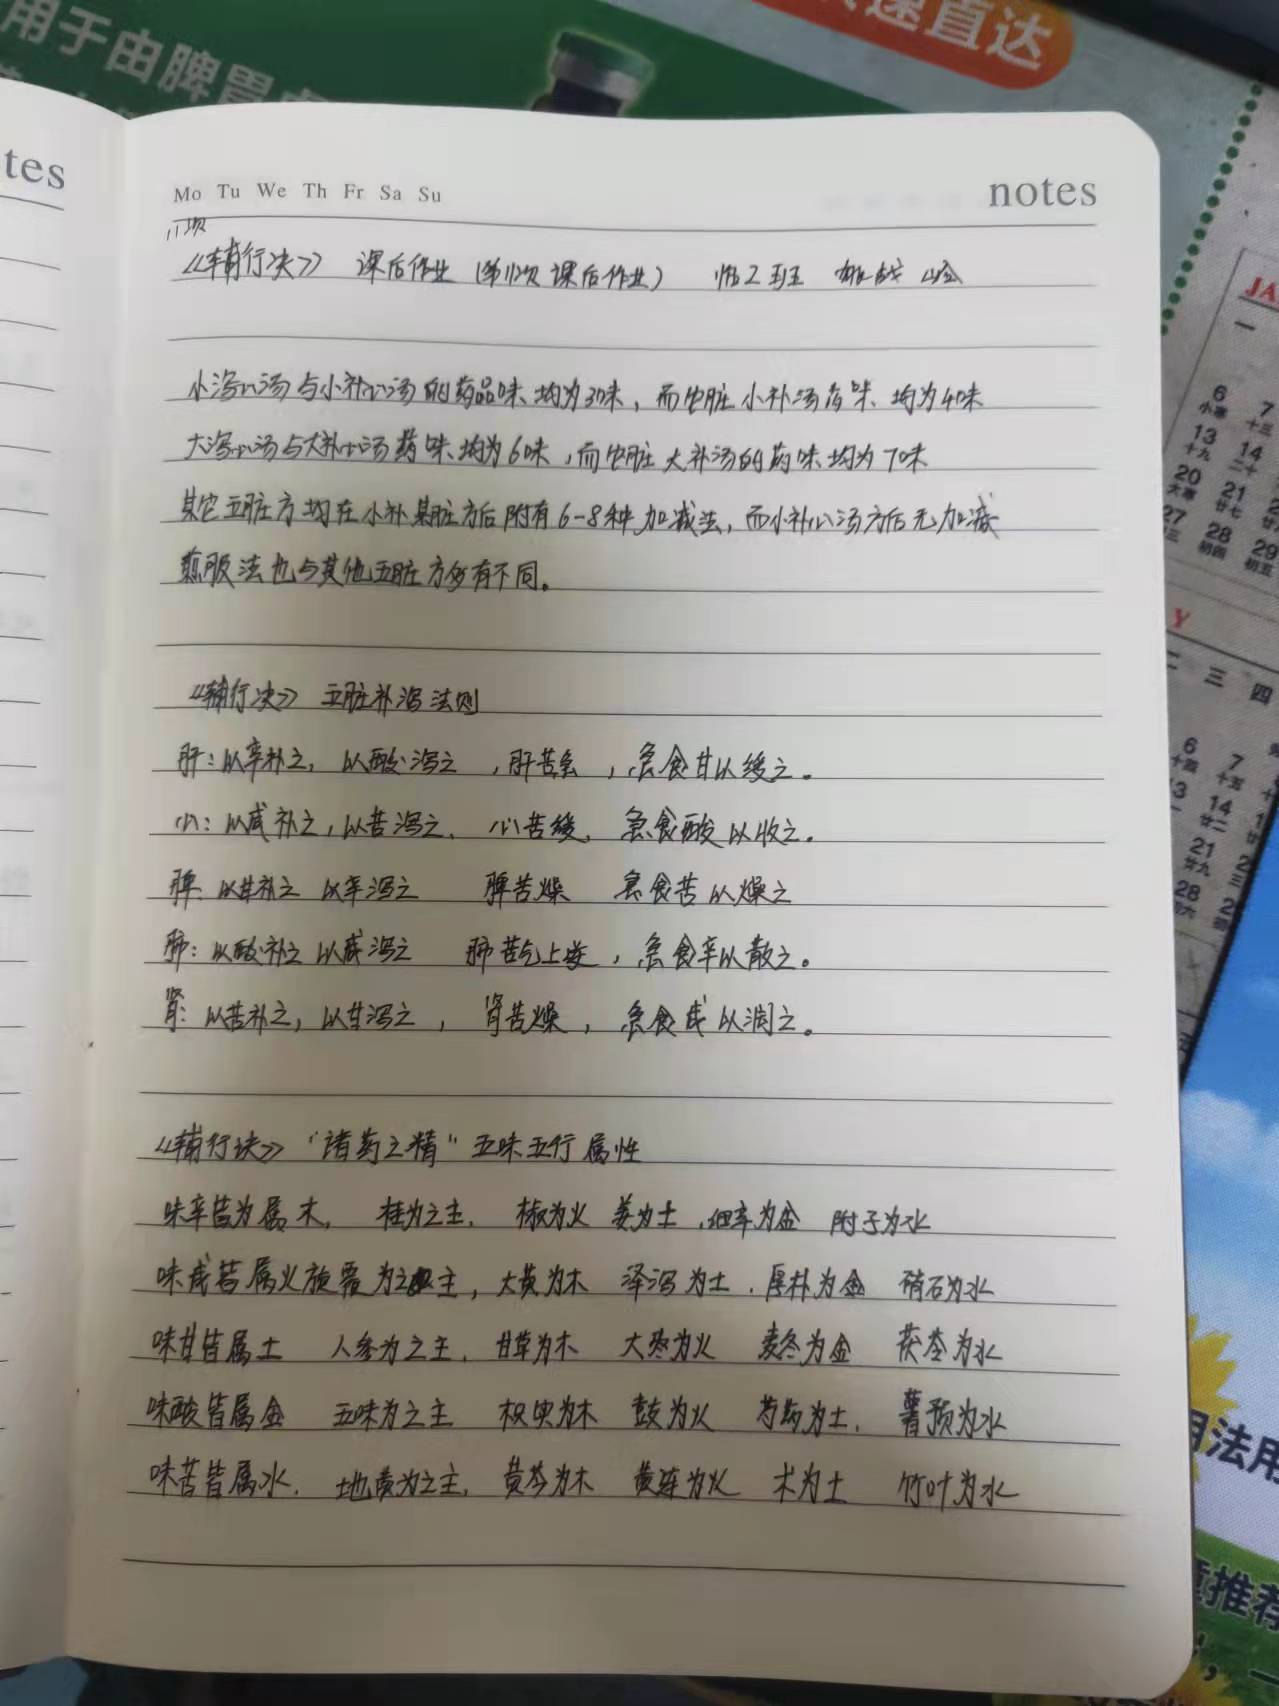 用于由脾胃
速直达
tes
Mo Tu We Th Fr Sa Su
notes
《辅行决》 课后作业
小泻心汤与小补心汤的药品味均为3味，而他脏小补汤药味均为4味
大泻心汤与大补心汤药味均为6味，而他脏大补汤的药味均为7味
其它五脏方均在小补某脏方后附有6-8种加减法，而小补心汤方后无加减
煎服法也与其他五脏方多有不同。
《辅行决》 五脏补泻法则
肝：以辛补之，以酸泻之，肝苦急，急食甘以缓之。
心：以咸补之，以苦泻之，心苦缓，急食酸以收之。
脾 以甘补之 以辛泻之 脾苦燥 急食苦以燥之
肺：以酸补之 以咸泻之 肺苦气上逆，急食辛以散之。
肾：以苦补之，以甘泻之，肾苦燥，急食咸以润之。
《辅行诀》“诸药之精”五味五行属性
味辛皆为属木，桂为之主，椒为火 姜为土，细辛为金 附子为水
味咸皆属火旋覆为之主，大黄为木 泽泻为土，厚朴为金 硝石为水
味甘皆属土 人参为之主，甘草为木 大枣为火 麦冬为金 茯苓为水
味酸皆属金 五味为之主 枳实为木 豉为火 芍药为土，薯预为水
味苦皆属水，地黄为之主，黄芩为木 黄连为火 术为土 竹叶为水
JA
一
6 7
小寒 十三
13 14
十九 二十
20 21
大寒 廿七
27 28 29
初四 初五
Y
二 三 四
6 7
十四 十五
14
21
廿九
28
法用
推荐